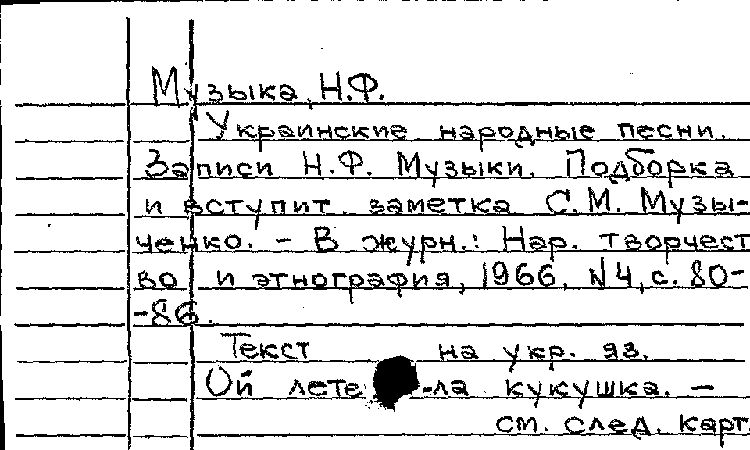 Музыка, Н.Ф.
Украинские народные песни.
Записи Н.Ф. Музыки. Подборка
и вступит. заметка С.М. Музы-
ченко. – В журн.: Нар. творчест
во и этнография, 1966, N4, с. 80-
-86.
Текст на укр. яз.
Ой лете -ла кукушка. –
см. след. карт.